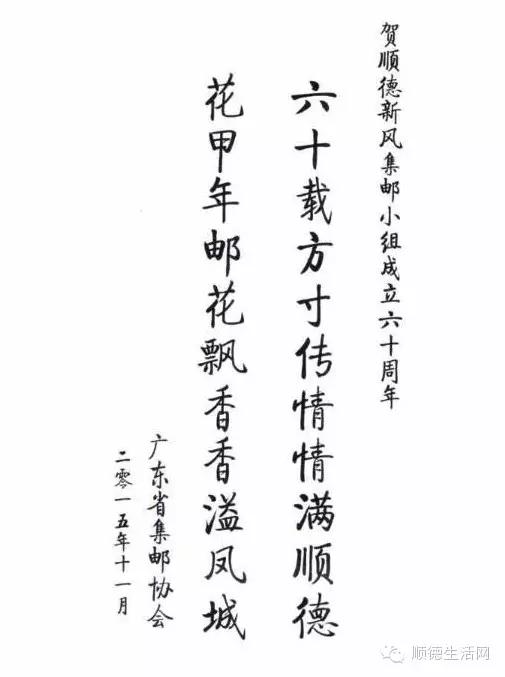 贺顺德新风集邮小组成立六十周年
六十载方寸传情情满顺德
花甲年邮花飘香香溢凤城
广东省集邮协会
二零一五年十一月
顺德生活网